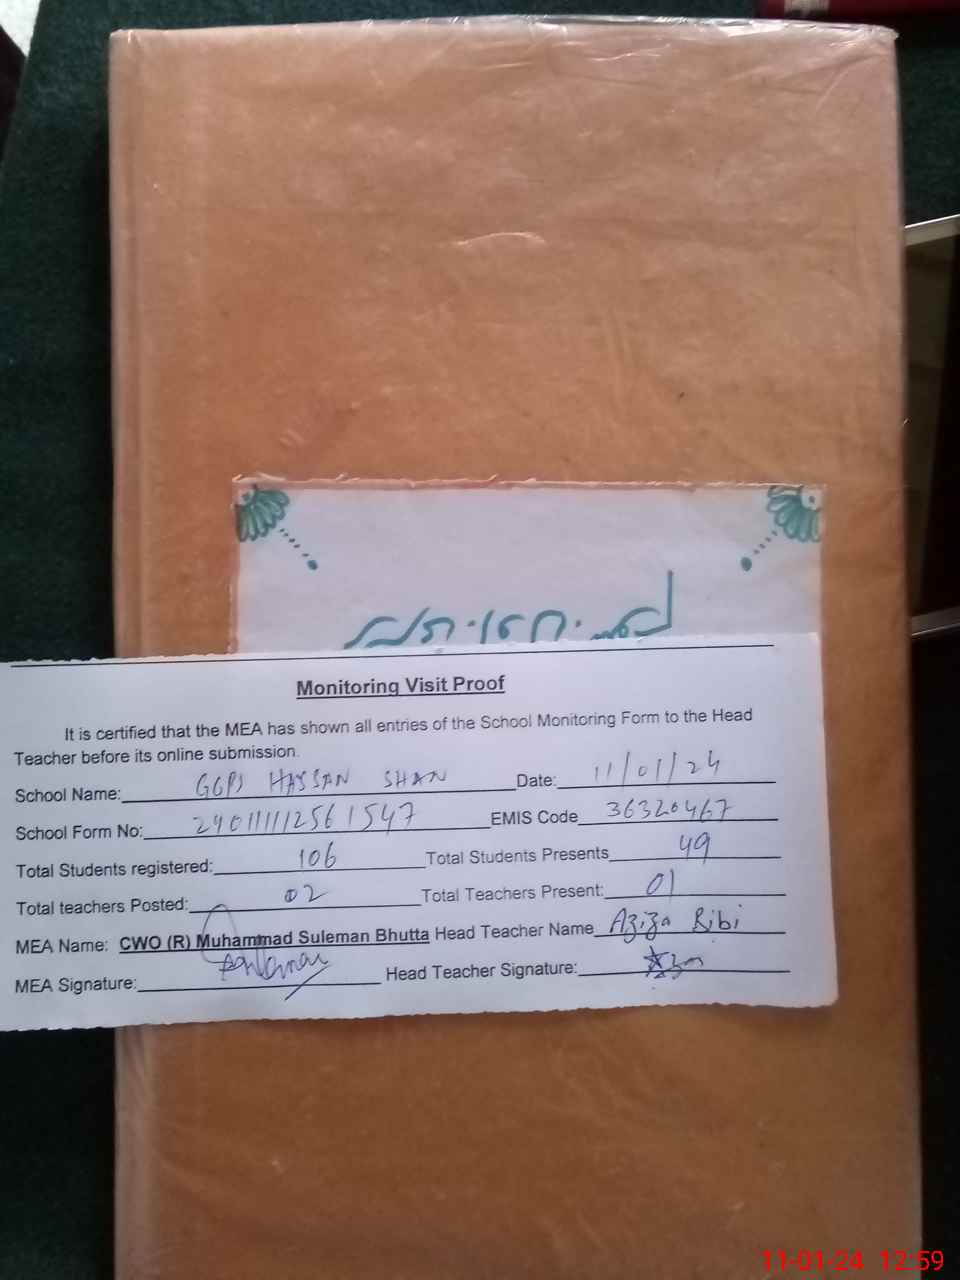 Monitoring Visit Proof
It is certified that the MEA has shown all entries of the School Monitoring Form to the Head
Teacher before its online submission.
School Name: GGPS HASSAN SHAN Date: 11/01/24
School Form No: 240111112561547 EMIS Code 36320467
Total Students registered: 106 Total Students Presents 49
Total teachers Posted: 02 Total Teachers Present: 01
MEA Name: CWO (R) Muhammad Suleman Bhutta Head Teacher Name Aziza Bibi
MEA Signature: Head Teacher Signature:
11-01-24 12:59